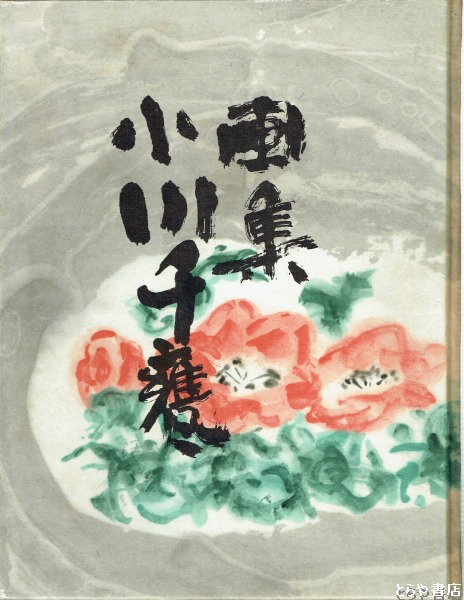 画集
小川千甕
とらや書店